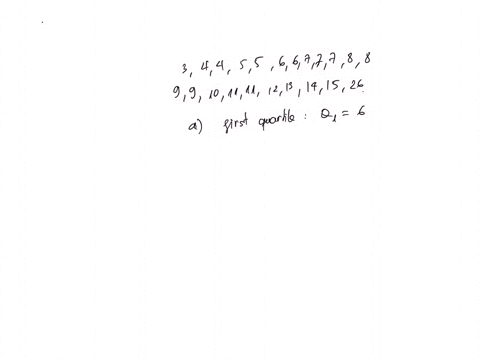 3, 4, 4, 5, 5, 6, 6, 7, 7, 7, 8, 8
9, 9, 10, 11, 11, 12, 13, 14, 15, 26
a) first quartile: Q₁ = 6